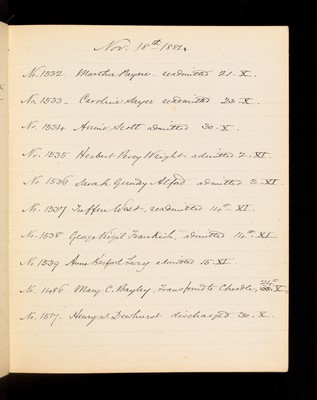 Nov. 18th 1881.
No. 1532 Martha Payne. readmitted 21. X.
No. 1533 Caroline Sayer readmitted 22. X.
No. 1534 Annie Scott admitted 30. X.
No. 1535 Herbert Percy Wright admitted 2. XI.
No 1536 Sarah Grundy admitted 3. XI.
No. 1537 Tuffen West, readmitted 14th XI.
No. 1538 George Virgil Frankish, admitted 14th XI
No. 1539 Anne admitted 15 XI.
No. 1486 Mary C. Bayley, Transferred to Cheadle, 24th X
No. 1517. Henry S. Dewhurst discharged 30. X.